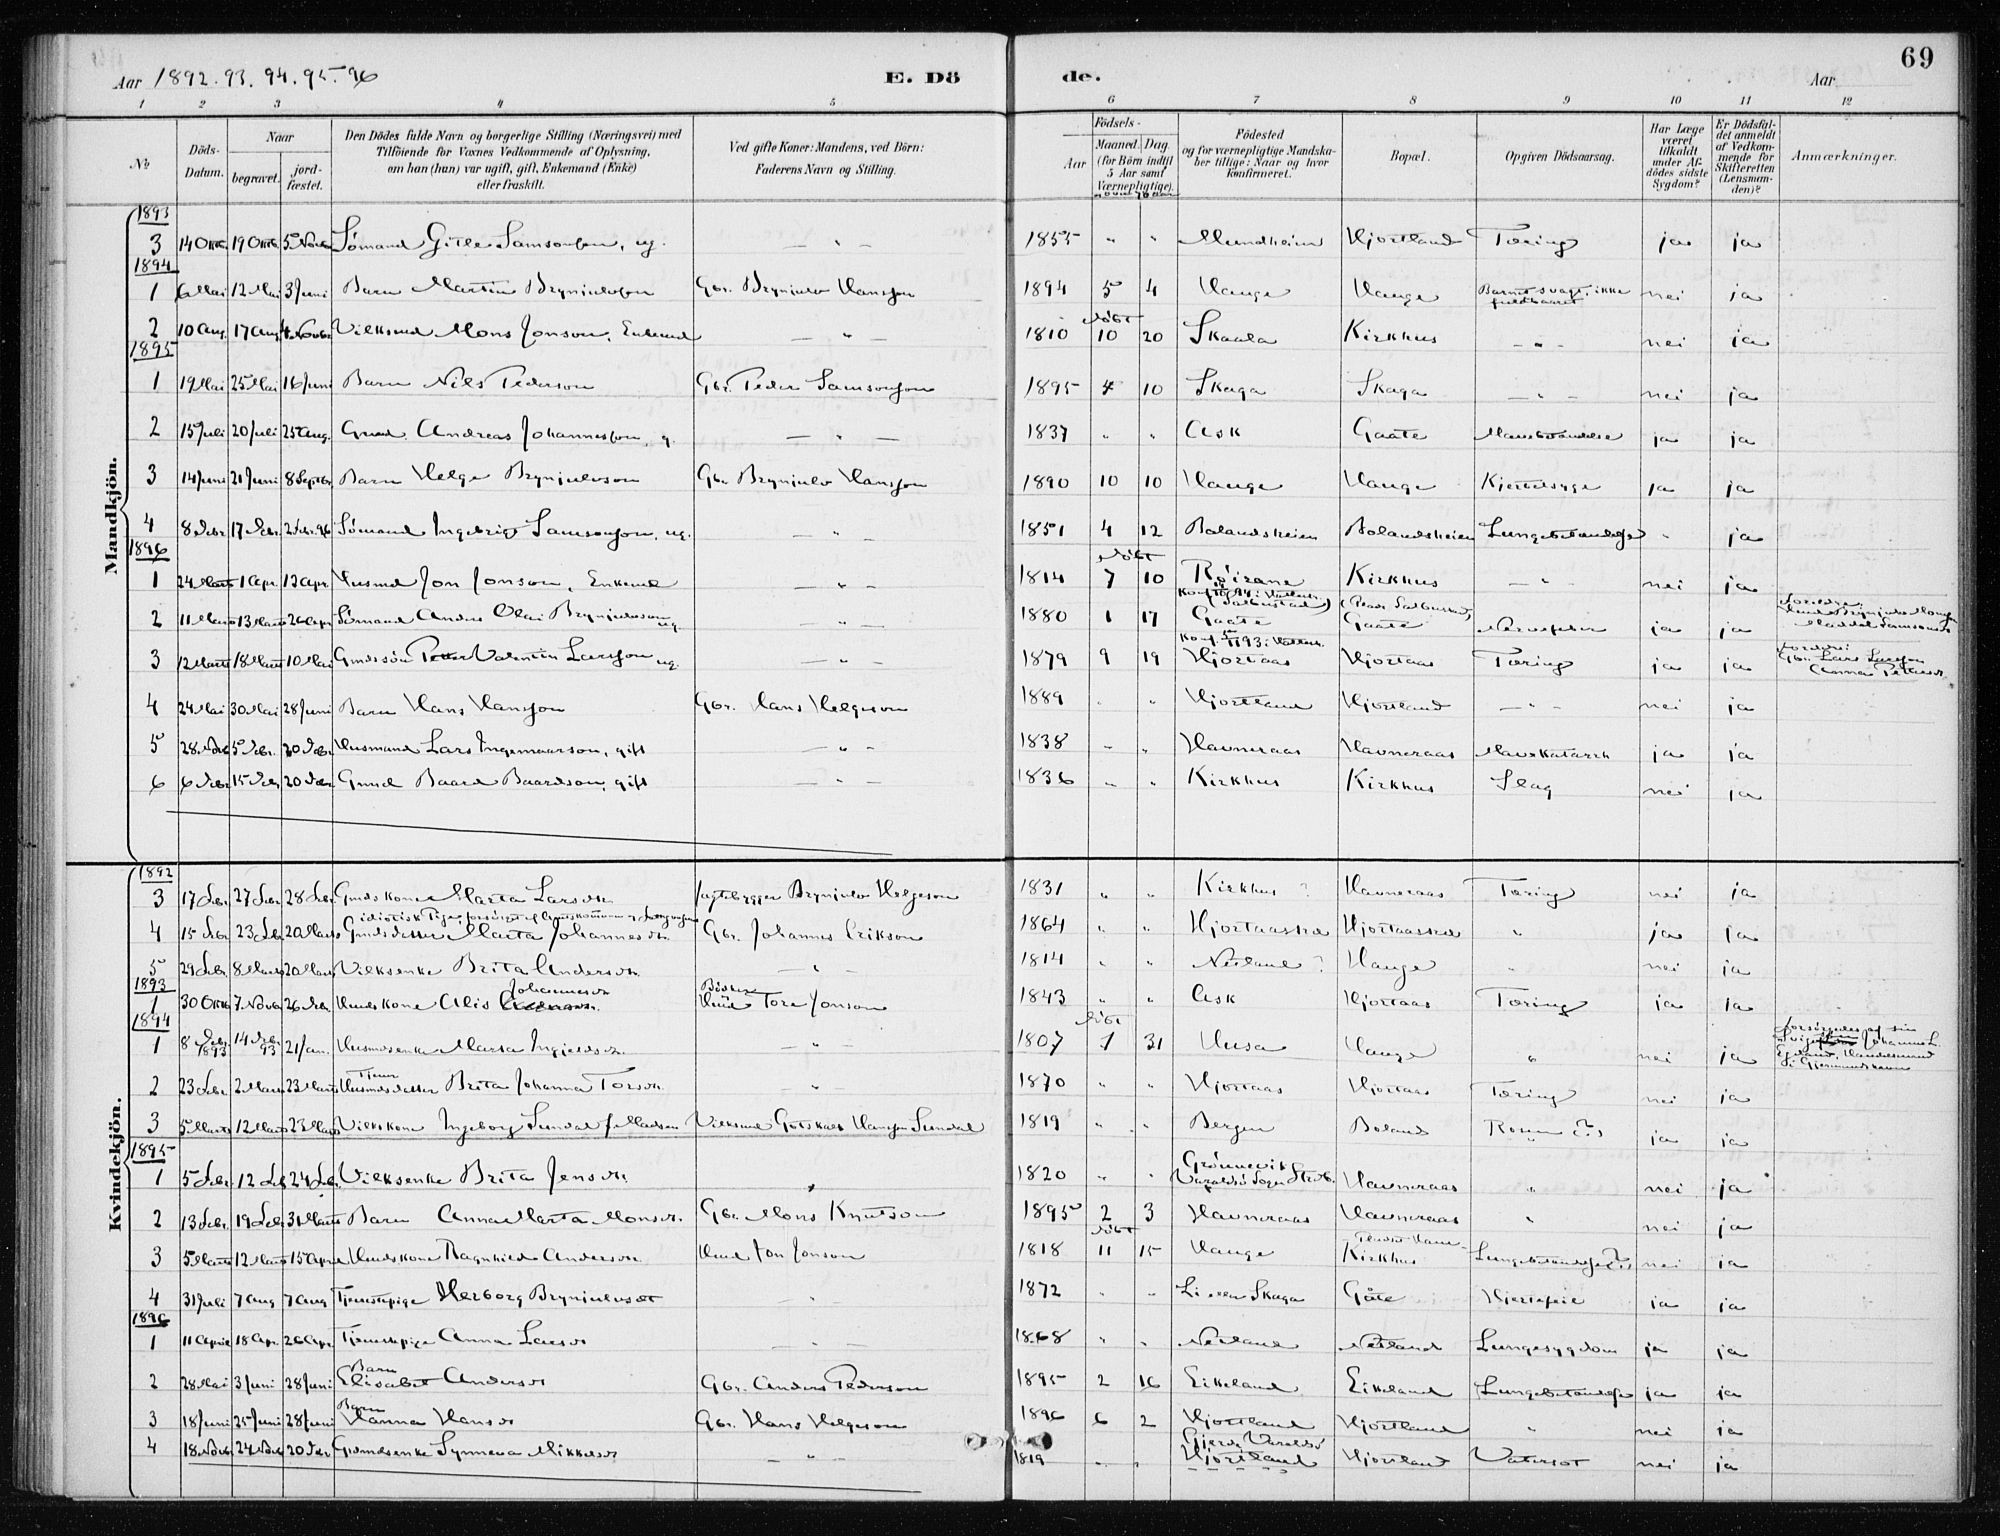 69
Aar 1892. 93. 94. 95. 96 E. Dö de. Aar
1 2 3 4 5 6 7 8 9 10 11 12
№ Döds-Datum. Naar begravet. jordfæstet. Den Dödes fulde Navn og borgerlige Stilling (Næringsvei) med Tilföiende for Voxnes Vedkommende af Oplysning, om han (hun) var ugift, gift, Enkemand (Enke) eller fraskilt. Ved gifte Koner: Mandens, ved Börn: Faderens Navn og Stilling. Aar Födsels- Maaned. Dag. (for Börn indtil 5 Aar samt Værnepligtige). Födested og for værnepligtige Mandskaber tillige: Naar og hvor konfirmeret. Bopæl. Opgiven Dödsaarsag. Har Læge været tilkaldt under Afdödes sidste Sygdom? Er Dödsfaldet anmeldt af Vedkommende for Skifteretten (Lensmanden)? Anmærkninger.
Mandkjön.
1893
3 14 Oktb. 19 Oktb. 5 Novb. Sömand Gitle Samsonsen, ug. — " — 1855 " " Mundheim Hjortland Tæring ja ja
1894
1 6 Mai 12 Mai 3 Juni Barn Martin Brynjulvsen Gbr. Brynjulv Hansson 1894 5 4 Hauge Hauge Barnet svagt, ikke fuldbaaret nei ja
2 10 Aug. 17 Aug. Novbr Vilksmd Mons Jonson, Enkemd — " — 1810 döbt 10 20 Skaala Kirkhus — " — nei ja
1895
1 19 Mai 25 Mai 16 Juni Barn Nils Pederson Gbr. Peder Samsonson 1895 4 10 Skaga Skaga — " — nei ja
2 15 Juli 20 Juli 25 Aug. Grmd. Andreas Johannessen, g. — " — 1837 " " Ask Gaate Mavebetændelse ja ja
3 14 Juni 21 Juni 8 Septbr. Barn Helge Brynjulvson Gbr Brynjulv Hansson 1890 10 10 Hauge Hauge Kjertelsyge ja ja
4 8 Debr 17 Debr. 2 Febr. 96 Sömand Ingebrigt Samsonson, ug. — " — 1851 4 12 Bolandsheien Bolandsheien Lungebetændelse " ja
1896
1 24 Marts 1 Apr. 12 Apr. Husmd Jon Jonson, Enkemd — " — 1814 döbt 7 10 Röirane Kirkhus — " — nei ja
2 11 Marts 13 Marts 26 Apr Sömand Anders Olai Brynjulvson ug. — " — 1880 1 17 Gaate Gaate Nervefeber ja ja
3 12 Marts 18 Marts 10 Mai Grmdssön Petter Valentin Larsson ug. — " — 1879 9 19 Hjortaas Hjortaas Tæring ja ja Gbr. Lars Larsson
4 24 Mai 30 Mai 28 Juni Barn Hans Hansson Gbr. Hans Helgeson 1889 " " Hjortland Hjortland — " — nei ja
5 28 Novb 5 Debr. 20 Debr Husmand Lars Ingemaarson, gift — " — 1838 " " Havneraas Havneraas Mavekatarrh ja ja
6 6 Debr 15 Debr 20 Debr Grmd Baard Baardson, gift — " — 1836 " " Kirkhus Kirkhus Slag nei ja
Kvindekjön.
1892
3 17 Febr. 27 Febr 28 Febr. Grmds kone Marta Larsdtr. Jagtebygger Brynjulv Helgeson 1831 " " Kirkhus ? Havneraas Tæring nei ja
4 15 Febr 23 Feb 20 Marts Grmdsdatter Marta Johannesdtr. Gbr. Johannes Erikson 1864 " " " ja ja
5 29 Febr. 8 Marts 20 Marts Vilksenke Brita Andersdtr. — " — 1814 " " Neiland ? Hauge " nei ja
1893
1 30 Oktb 7 Novb 26 Debr. Husmds kone Alis Johannesdtr Tore Jonson 1843 " " Ask Hjortaas Tæring ja ja
1894
1 8 Debr. 1893 14 Debr. 93 21 Jan. Husmdsenke Marta Ingjeldsdtr. — " — 1807 döbt 1 31 Husa Hauge " nei ja
2 23 Febr. 2 Marts 23 Marts Tjener Husmdsdatter Brita Johanna Torsdtr. — " — 1870 " " Hjortaas Hjortaas Tæring nei ja
3 5 Marts 12 Marts 23 Marts Vilks kone Ingeborg Sundal f. Madsen Vilksmd Gotskalk Hansen Sundal 1819 " " Bergen Boland Rosen (?) ja ja
1895
1 5 Febr. 12 Feb 24 Febr. Vilksenke Brita Jensdtr. 1820 " " Grönnevik Varaldsö Sogn Strb. Havneraas " nei ja
2 13 Febr. 19 Febr. 31 Marts Barn Anna Marta Monsdtr. Gbr. Mons Knutson 1895 2 3 Havneraas Havneraas " nei ja
3 5 Marts 12 Marts 15 April Husmds kone Ragnhilde Andersdtr. Husmd Jon Jonson 1818 döbt 11 15 Hauge Kirkhus Lungebetændelse (?) nei ja
4 31 Juli 7 Aug 7 Aug Tjenestepige Herborg Brynjulvsdt — " — 1872 " " Li Skaga Gåte Hjertefeil ja ja
1896
1 11 April 18 Apr. 26 Apr. Tjenestepige Anna Larsdt — " — 1868 " " Neiland Neiland Lungesygdom ja ja
2 28 Mai 3 Juni 28 Juni Barn Elisabet Andersdt Gbr. Anders Pederson 1895 2 16 Eikeland Eikeland Lungebetændelse ja ja
3 18 Juni 25 Juni 28 Juni Barn Hanna Hansdt Gbr. Hans Helgeson 1896 6 2 Hjortland Hjortland " nei ja
4 18 Novb. 24 Novb 20 Debr Grmdsenke Synneva Mikkelsdt — " — 1819 " " Gjerde Varaldsö Hjortland Hjortland Vatersot nei ja